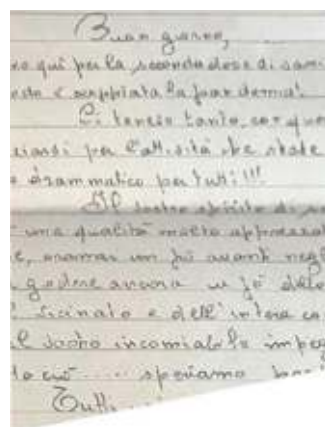 Buon giorno,
no qui per la seconda dose di
è scoppiata la pandemia!
Ci tenevo tanto, con que
per l'attività che state
drammatico per tutti!!!
Il vostro spirito di
una qualità molto apprezzat
e, oramai un pò avanti negl
godere ancora un pò della
vicinato e dell'intera co
l vostro incomiabile impeg
ciò .... speriamo
Tutti...